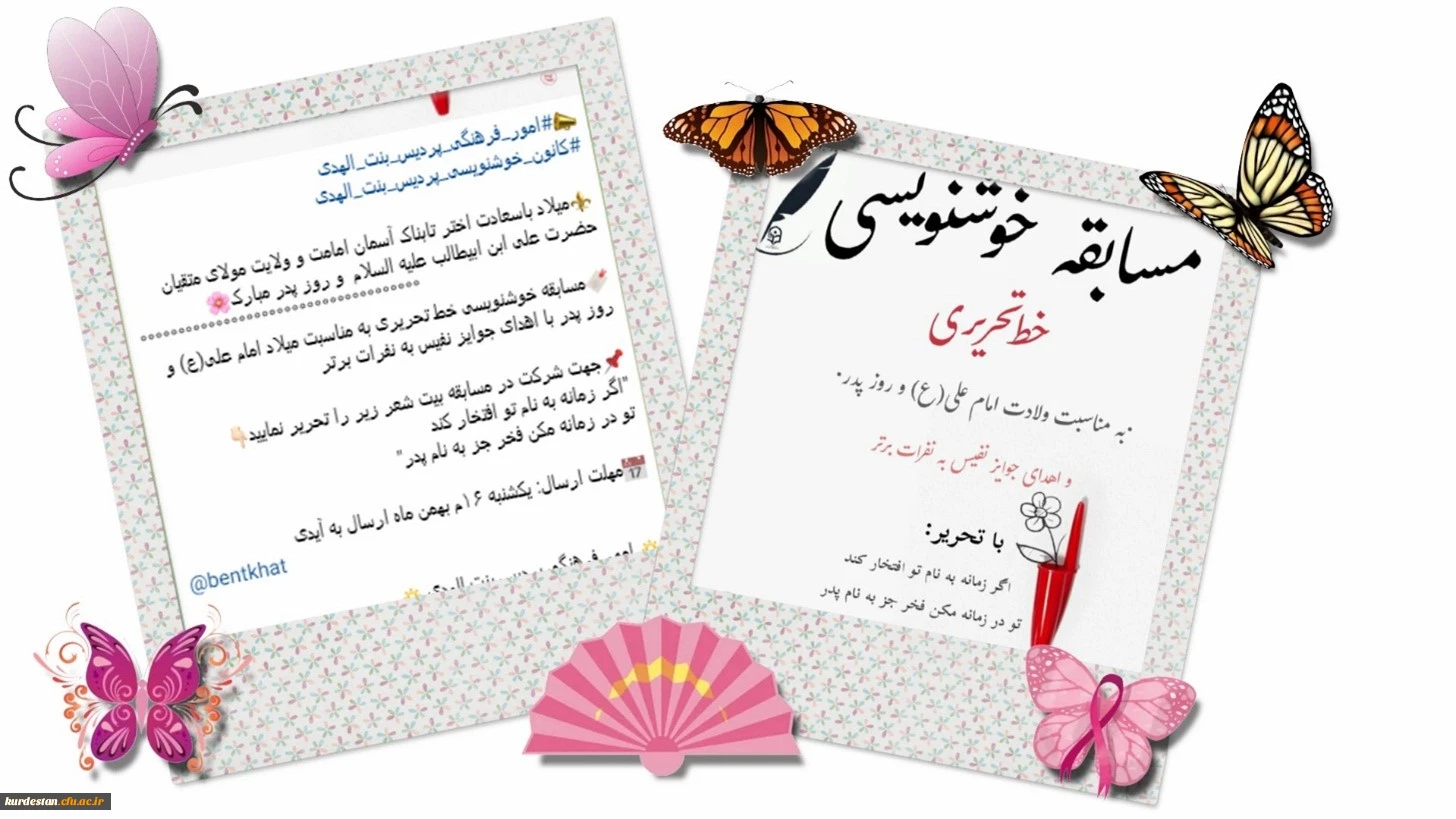 #امور_فرهنگی_پردیس_بنت_الهدی
#کانون_خوشنویسی_پردیس_بنت_الهدی
میلاد باسعادت اختر تابناک آسمان امامت و ولایت مولای متقیان
حضرت علی ابن ابیطالب علیه السلام و روز پدر مبارک
مسابقه خوشنویسی خط تحریری به مناسبت میلاد امام علی(ع) و
روز پدر با اهدای جوایز نفیس به نفرات برتر
جهت شرکت در مسابقه بیت شعر زیر را تحریر نمایید
"اگر زمانه به نام تو افتخار کند
تو در زمانه مکن فخر جز به نام پدر"
مهلت ارسال: یکشنبه ۱۶م بهمن ماه ارسال به آیدی
@bentkhat
امور فرهنگی پردیس بنت الهدی
مسابقه خوشنویسی
خط تحریری
به مناسبت ولادت امام علی(ع) و روز پدر.
و اهدای جوایز نفیس به نفرات برتر
با تحریر:
اگر زمانه به نام تو افتخار کند
تو در زمانه مکن فخر جز به نام پدر
kurdestan.cfu.ac.ir